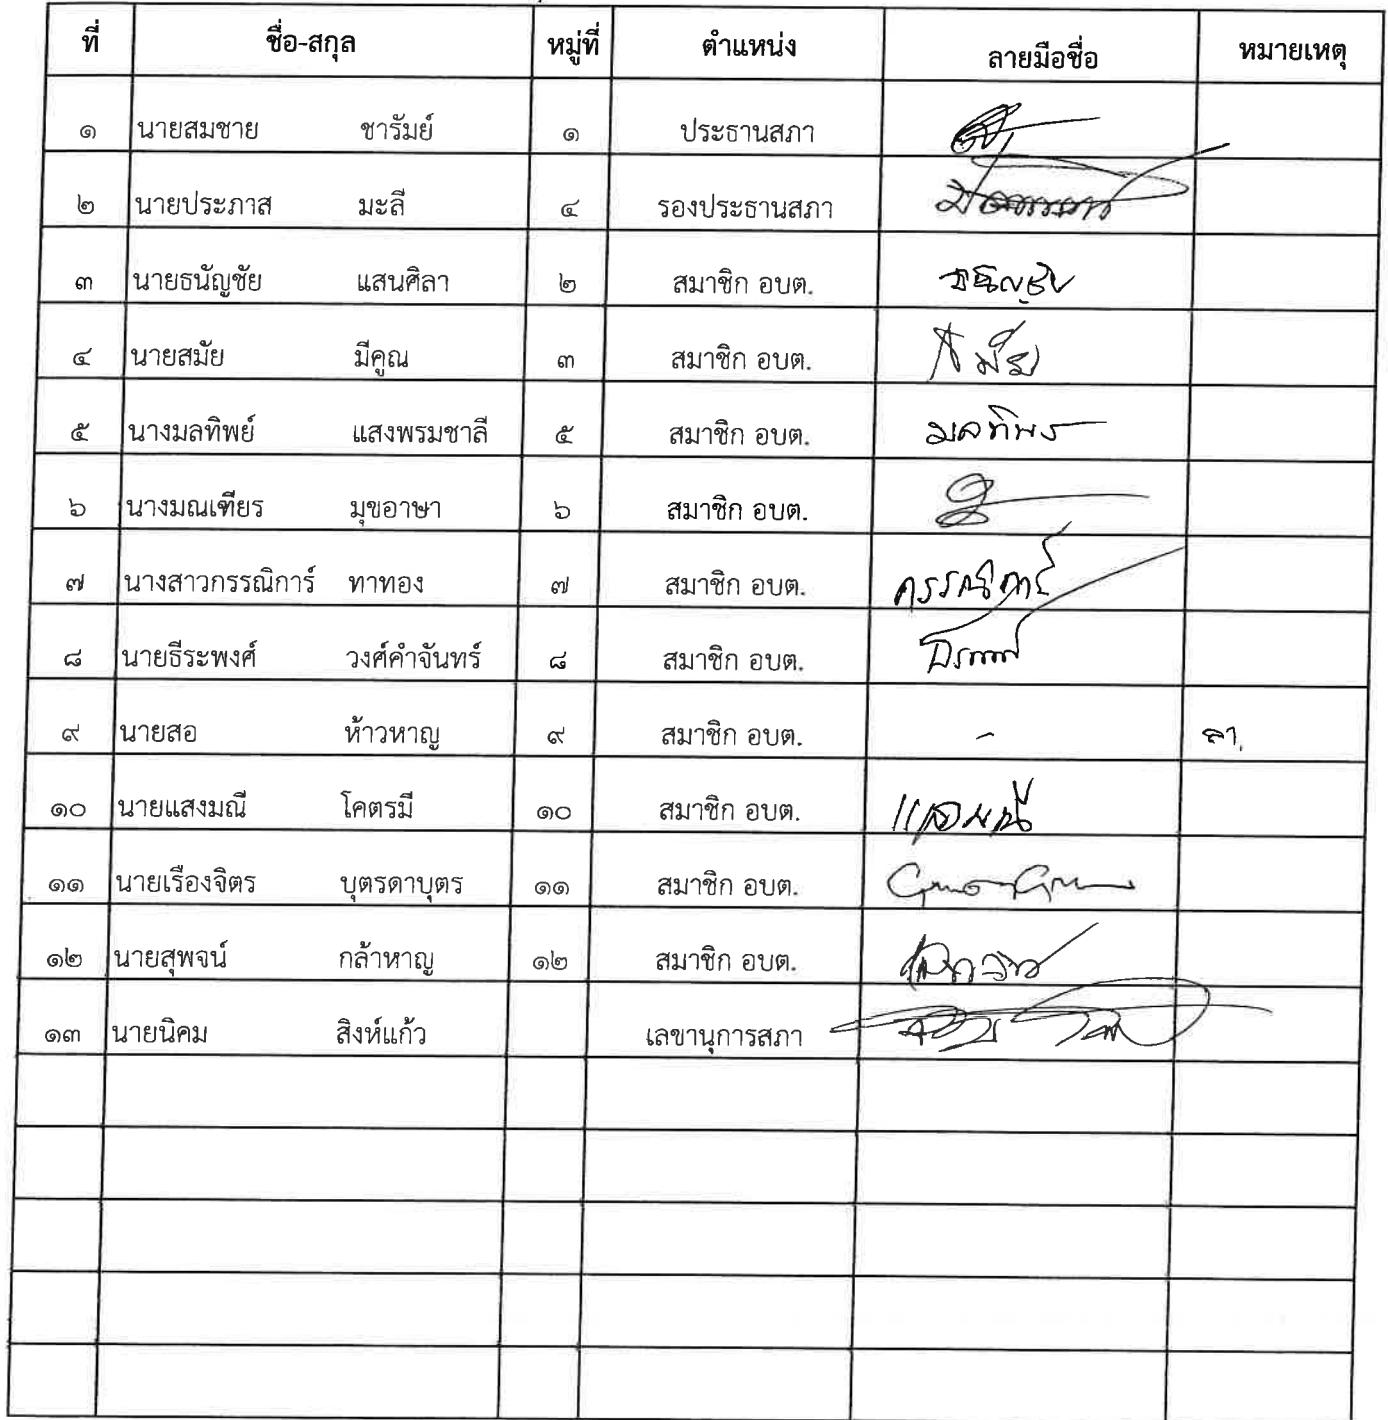 ที่ ชื่อ-สกุล หมู่ที่ ตำแหน่ง ลายมือชื่อ หมายเหตุ
๑ นายสมชาย ชารัมย์ ๑ ประธานสภา
๒ นายประภาส มะลี ๔ รองประธานสภา
๓ นายธนัญชัย แสนศิลา ๒ สมาชิก อบต. ธนัญชัย
๔ นายสมัย มีคูณ ๓ สมาชิก อบต. สมัย
๕ นางมลทิพย์ แสงพรมชาลี ๕ สมาชิก อบต. มลทิพย์
๖ นางมณเฑียร มุขอาษา ๖ สมาชิก อบต.
๗ นางสาวกรรณิการ์ ทาทอง ๗ สมาชิก อบต. กรรณิการ์
๘ นายธีระพงศ์ วงศ์คำจันทร์ ๘ สมาชิก อบต.
๙ นายสอ ห้าวหาญ ๙ สมาชิก อบต. - ลา
๑๐ นายแสงมณี โคตรมี ๑๐ สมาชิก อบต. แสงมณี
๑๑ นายเรืองจิตร บุตรดาบุตร ๑๑ สมาชิก อบต.
๑๒ นายสุพจน์ กล้าหาญ ๑๒ สมาชิก อบต.
๑๓ นายนิคม สิงห์แก้ว เลขานุการสภา